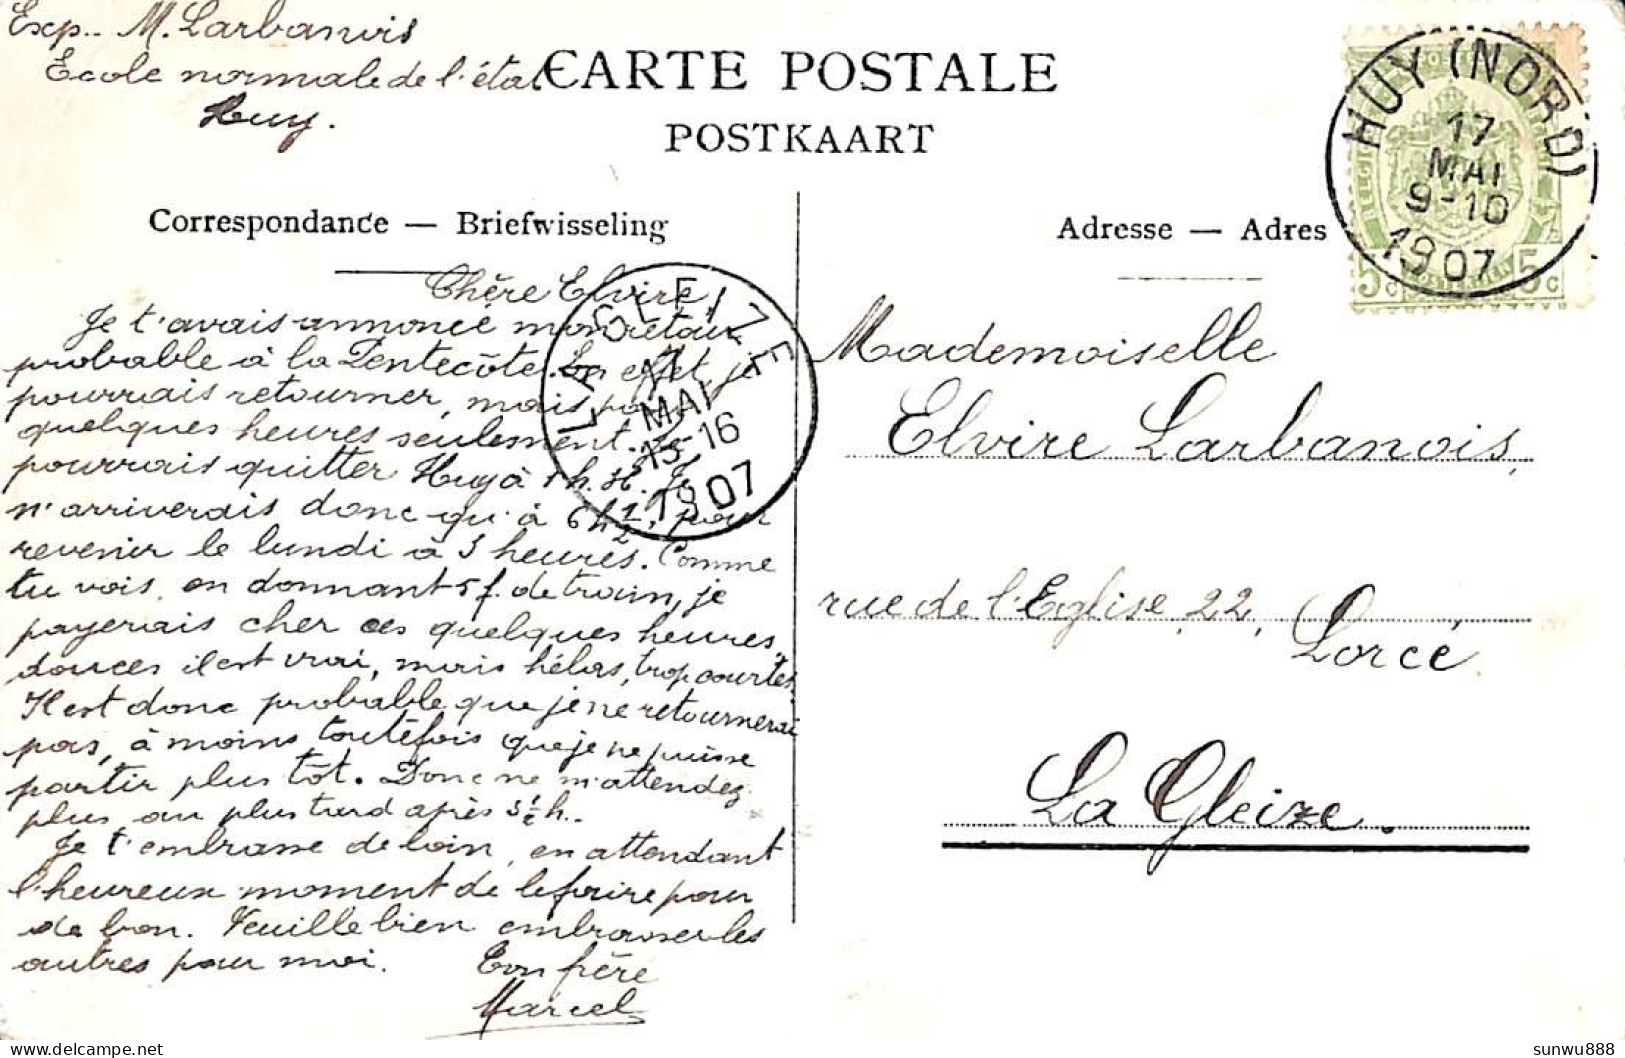 Exp.. M. Larbanois
Ecole normale de l'état
Huy.
CARTE POSTALE
POSTKAART
HUY (NORD)
17
MAI
9-10
1907
BELGIQUE
5c 5c
Correspondance — Briefwisseling
Adresse — Adres
LA GLEIZE
17
MAI
15-16
1907
Chère Elvire,
Je t'avais annoncé mon retour
probable à la Pentecôte. En effet, je
pourrais retourner, mais pour
quelques heures seulement. Je
pourrais quitter Huy à h. Je
n'arriverais donc qu'à 6 h 1/2, pour
revenir le lundi à 3 heures. Comme
tu vois, en donnant 5 f. de train, je
payerais cher ces quelques heures,
douces il est vrai, mais hélas, trop courtes.
Il est donc probable que je ne retournerai
pas, à moins toutefois que je ne puisse
partir plus tôt. Donc ne m'attendez
plus au plus tard après 3 1/2 h.
Je t'embrasse de loin, en attendant
l'heureux moment de le faire pour
de bon. Veuille bien embrasser les
autres pour moi. Ton frère
Marcel
Mademoiselle
Elvire Larbanois,
rue de l'Eglise, 22,
Lorcé
La Gleize.
sunwu888